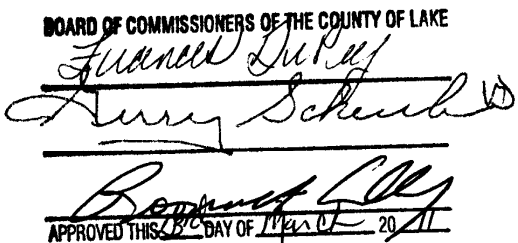 BOARD OF COMMISSIONERS OF THE COUNTY OF LAKE
Frances DuPey
Gerry Scheub
Roosevelt Allen
APPROVED THIS DAY OF March 20 11